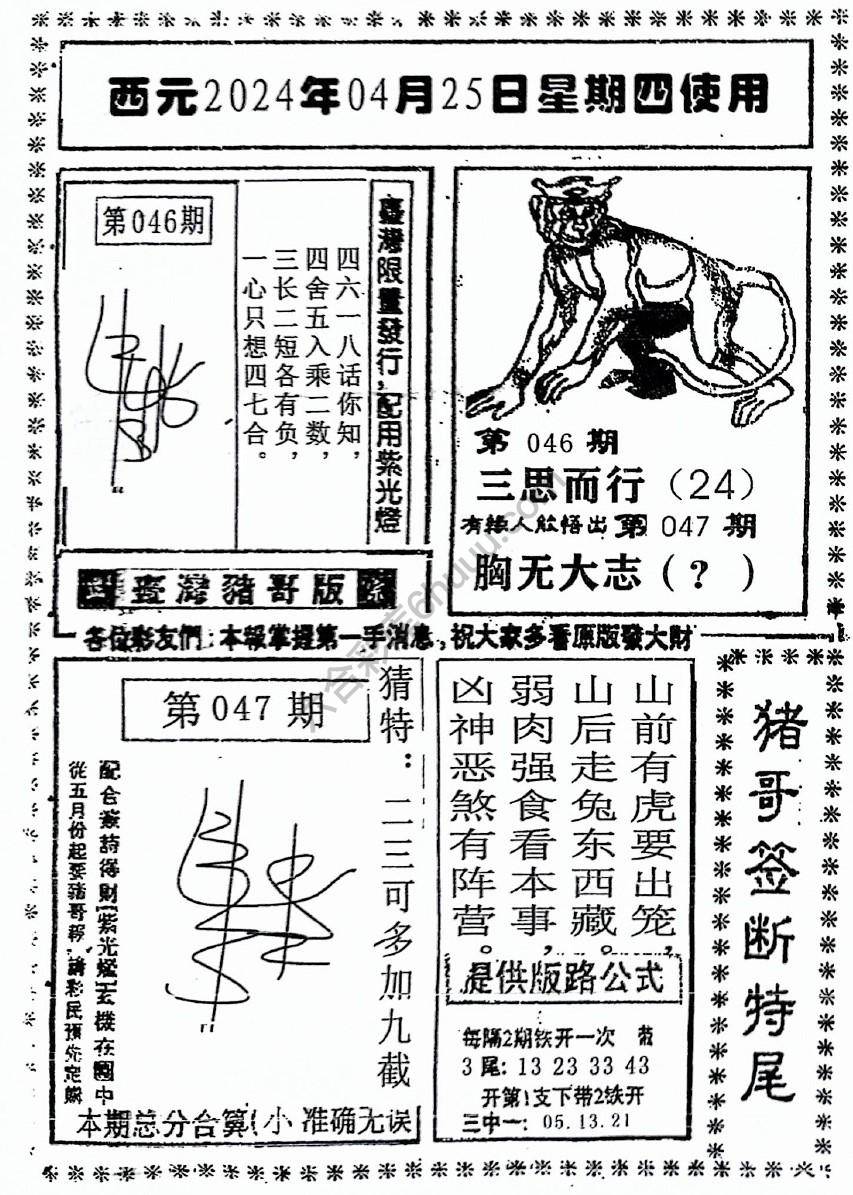 西元2024年04月25日星期四使用
第046期
臺灣限量發行,配用紫光燈
四六一八话你知,
四舍五入乘二数,
三长二短各有负,
一心只想四七合。
第 046 期
三思而行（24）
有緣人能悟出 第 047 期
胸无大志（?）
臺灣豬哥版
各位彩友們:本報掌握第一手消息,祝大家多看原版發大財
第047期
猜特：二三可多加九截
配合簽詩得財[紫光燈]玄機在圖中
從五月份起要豬哥報,請彩民預先定購
本期总分合算(小 准确无误
山前有虎要出笼,
山后走兔东西藏。
弱肉强食看本事,
凶神恶煞有阵营。
提供版路公式
每隔2期铁开一次 带
3尾: 13 23 33 43
开第1支下带2铁开
三中一: 05.13.21
猪哥签断特尾
六合彩库6huuu.com